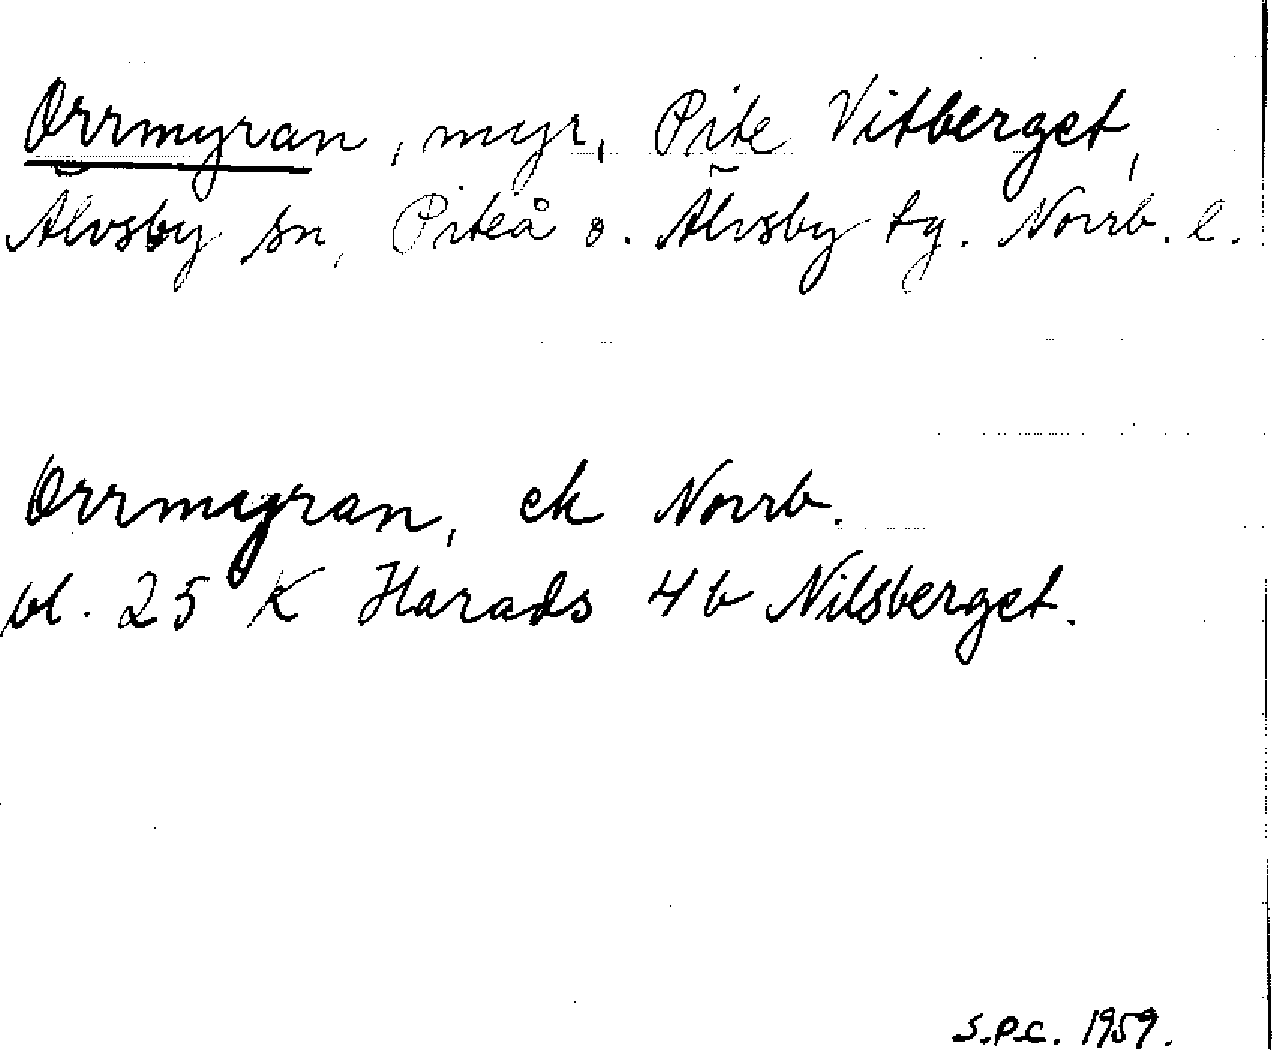 Orrmyran, myr, Pite Vitberget,
Älvsby sn, Piteå o. Älvsby tg. Norrb. l.
Orrmyran, ek Norrb.
bl. 25 K Harads 4b Nilsberget.
S.P.C. 1959.